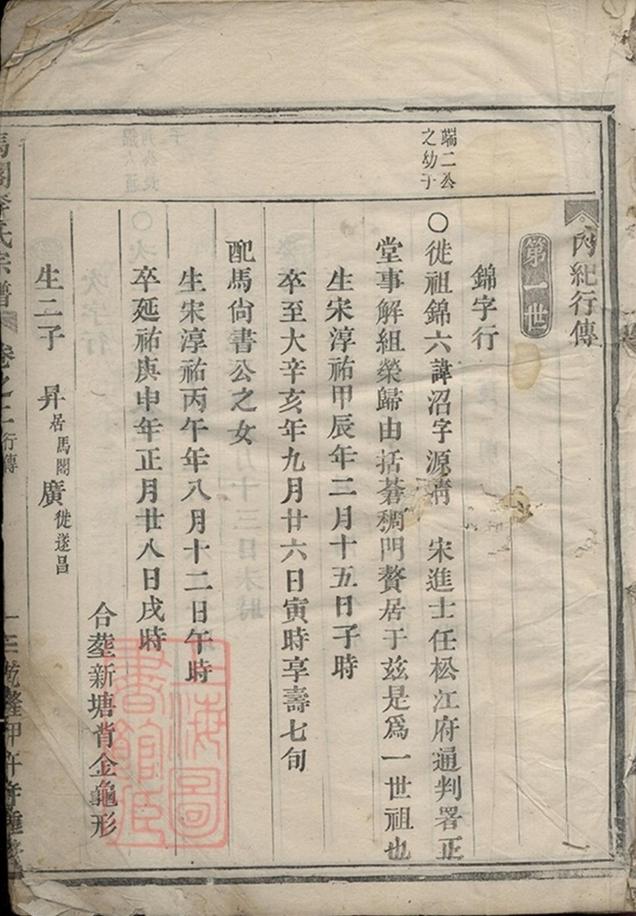 內紀行傳
第一世
錦字行
端二公
之幼子
〇徙祖錦六諱沼字源清　宋進士任松江府通判署正
堂事解組榮歸由括蒼稠門贅居于茲是爲一世祖也
生宋淳祐甲辰年二月十五日子時
卒至大辛亥年九月廿六日寅時享壽七旬
配馬尙書公之女
生宋淳祐丙午年八月十二日午時
卒延祐庚申年正月廿八日戌時
合塟新塘背金龜形
生二子　昇居馬閣廣徙遂昌
馬閣李氏宗譜　卷之　行傳
上海圖
書館臣